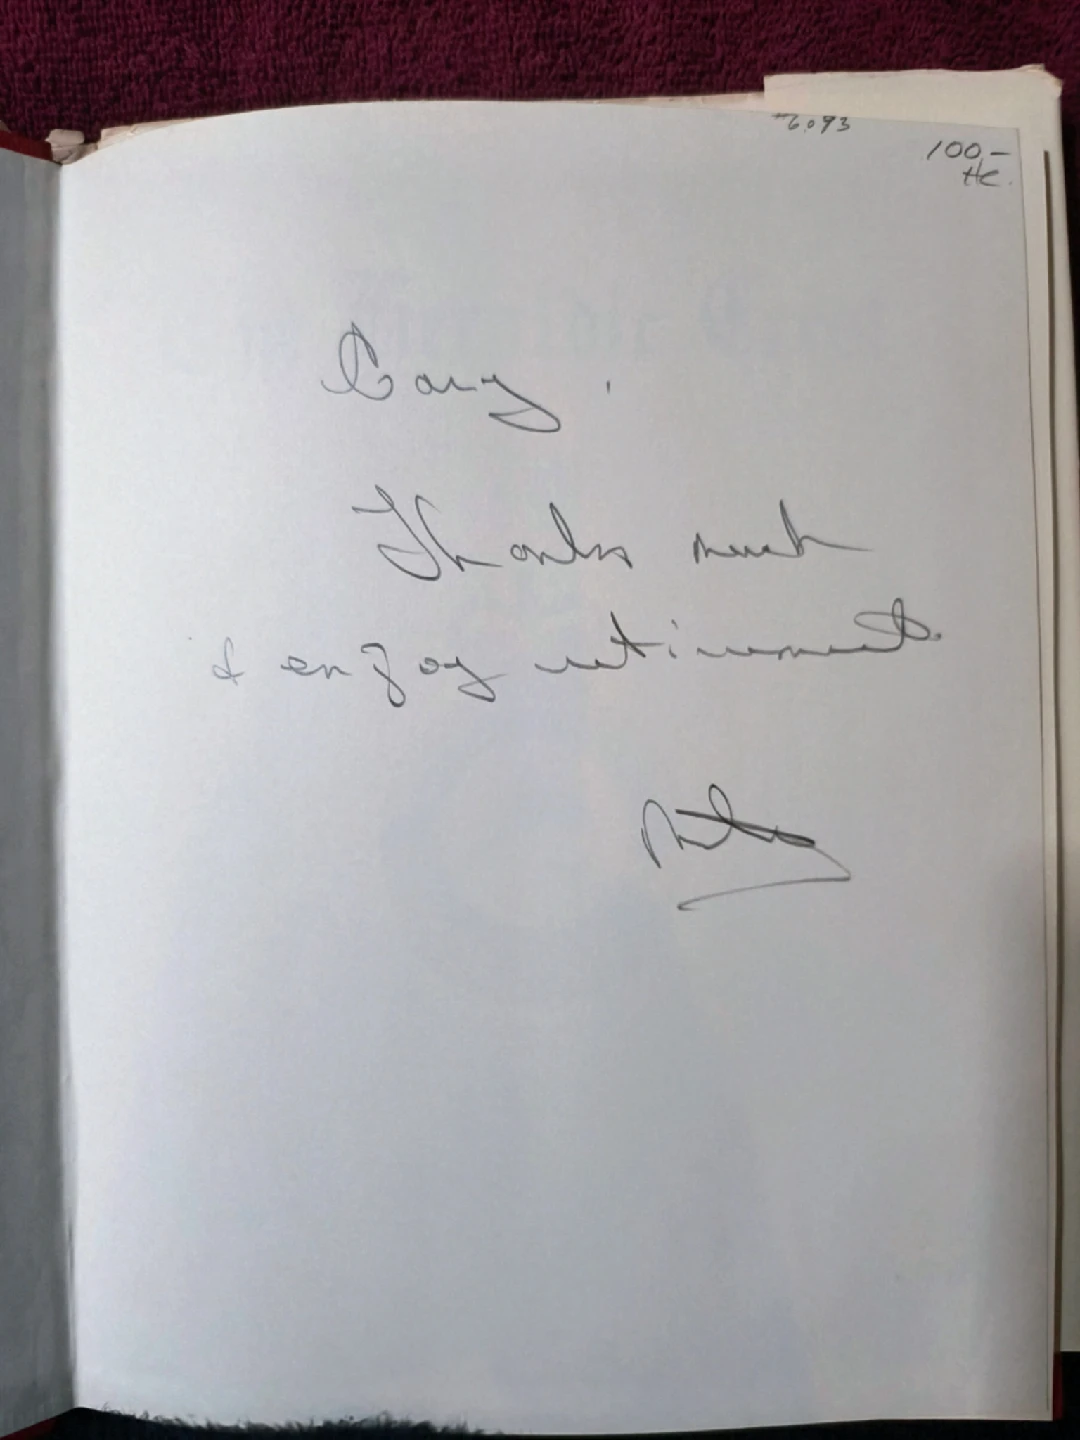 6.93
100,-
HC.
Gary,
Thanks much
& enjoy retirement.